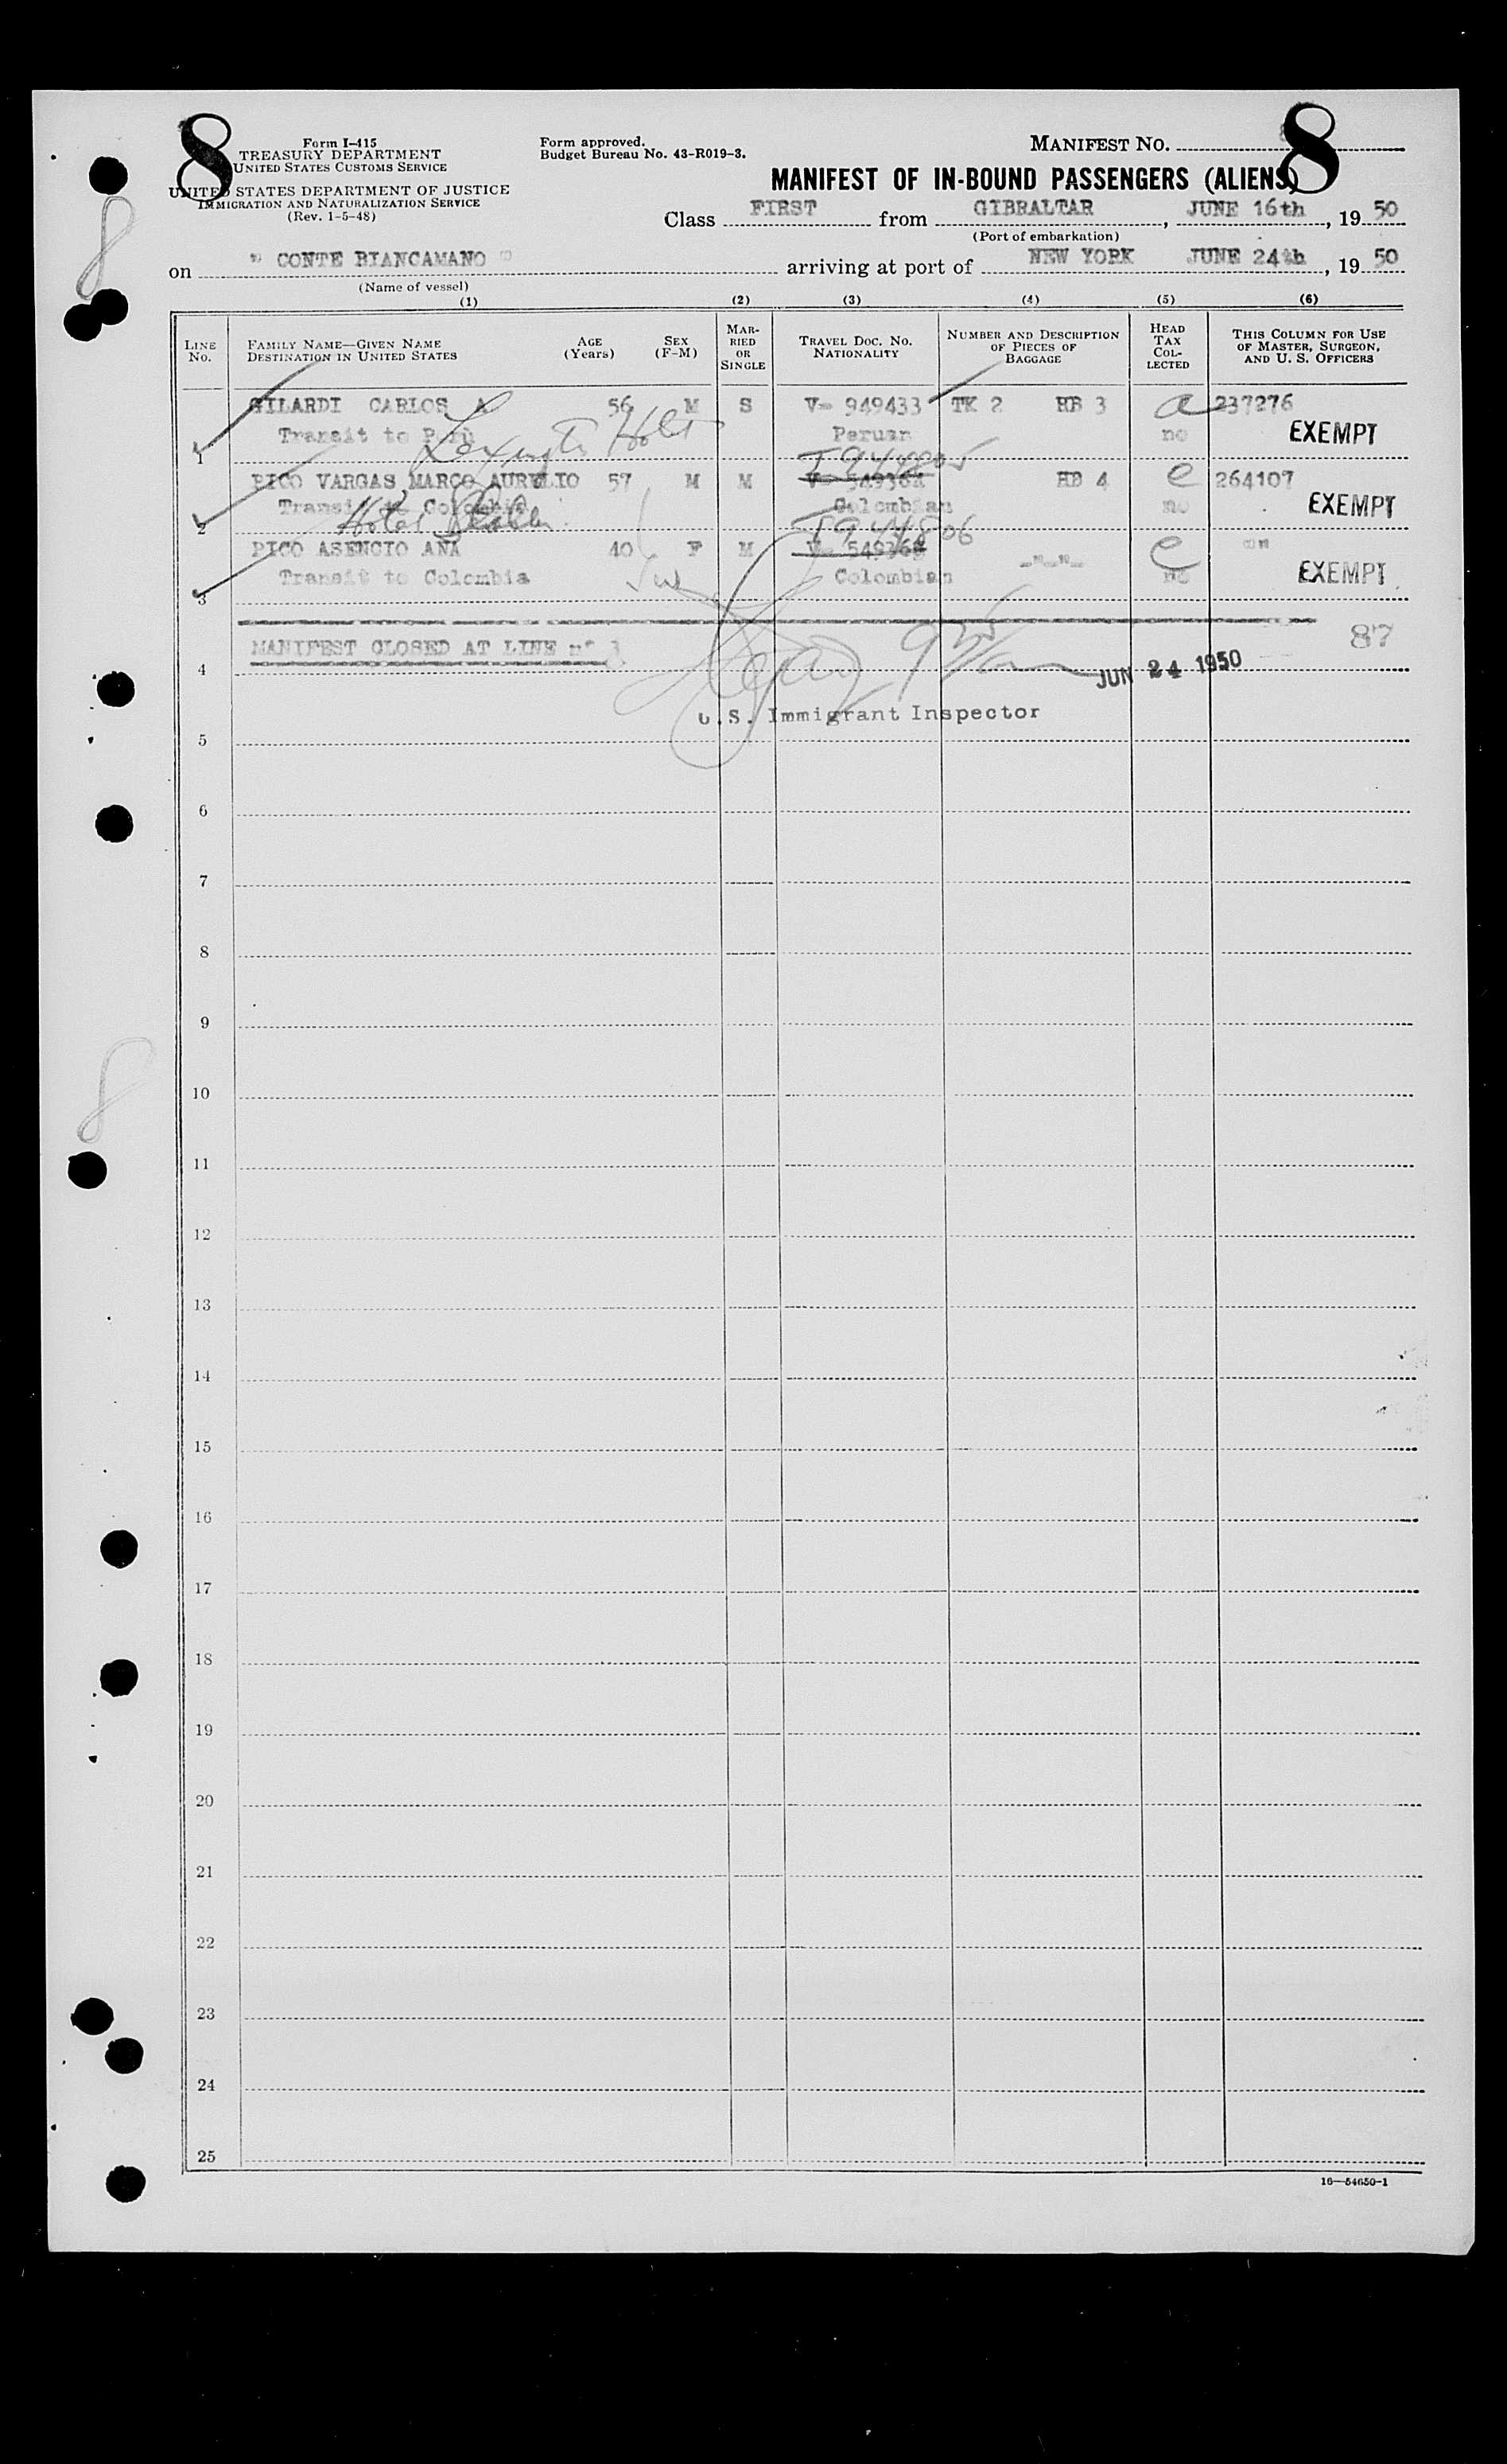 8 Form I-415 Form approved. MANIFEST NO. 8
TREASURY DEPARTMENT Budget Bureau No. 43-R019-3.
UNITED STATES CUSTOMS SERVICE
MANIFEST OF IN-BOUND PASSENGERS (ALIENS)
UNITED STATES DEPARTMENT OF JUSTICE
IMMIGRATION AND NATURALIZATION SERVICE
(Rev. 1-5-48)
8
Class FIRST from GIBRALTAR, JUNE 16th, 19 50
(Port of embarkation)
on " CONTE BIANCAMANO " arriving at port of NEW YORK JUNE 24th, 19 50
(Name of vessel)
(1) (2) (3) (4) (5) (6)
LINE No. FAMILY NAME—GIVEN NAME DESTINATION IN UNITED STATES AGE (Years) SEX (F-M) MARRIED OR SINGLE TRAVEL DOC. NO. NATIONALITY NUMBER AND DESCRIPTION OF PIECES OF BAGGAGE HEAD TAX COLLECTED THIS COLUMN FOR USE OF MASTER, SURGEON, AND U. S. OFFICERS
GILARDI CARLOS A 56 M S V- 949433 TK 2 HB 3 237276
1 Transit to Perù Peruan no EXEMPT
T944805
PICO VARGAS MARCO AURELIO 57 M M HB 4 e 264107
2 Transit to Colombia Hotel Colombian no EXEMPT
T944806
PICO ASENCIO ANA 40 F M V- 549363 -"-"- e ""
3 Transit to Colombia Colombian no EXEMPT
MANIFEST CLOSED AT LINE n° 3 87
4 JUN 24 1950
U.S. Immigrant Inspector
5
6
7
8
9
8
10
11
12
13
14
15
16
17
18
19
20
21
22
23
24
25
16—54650-1